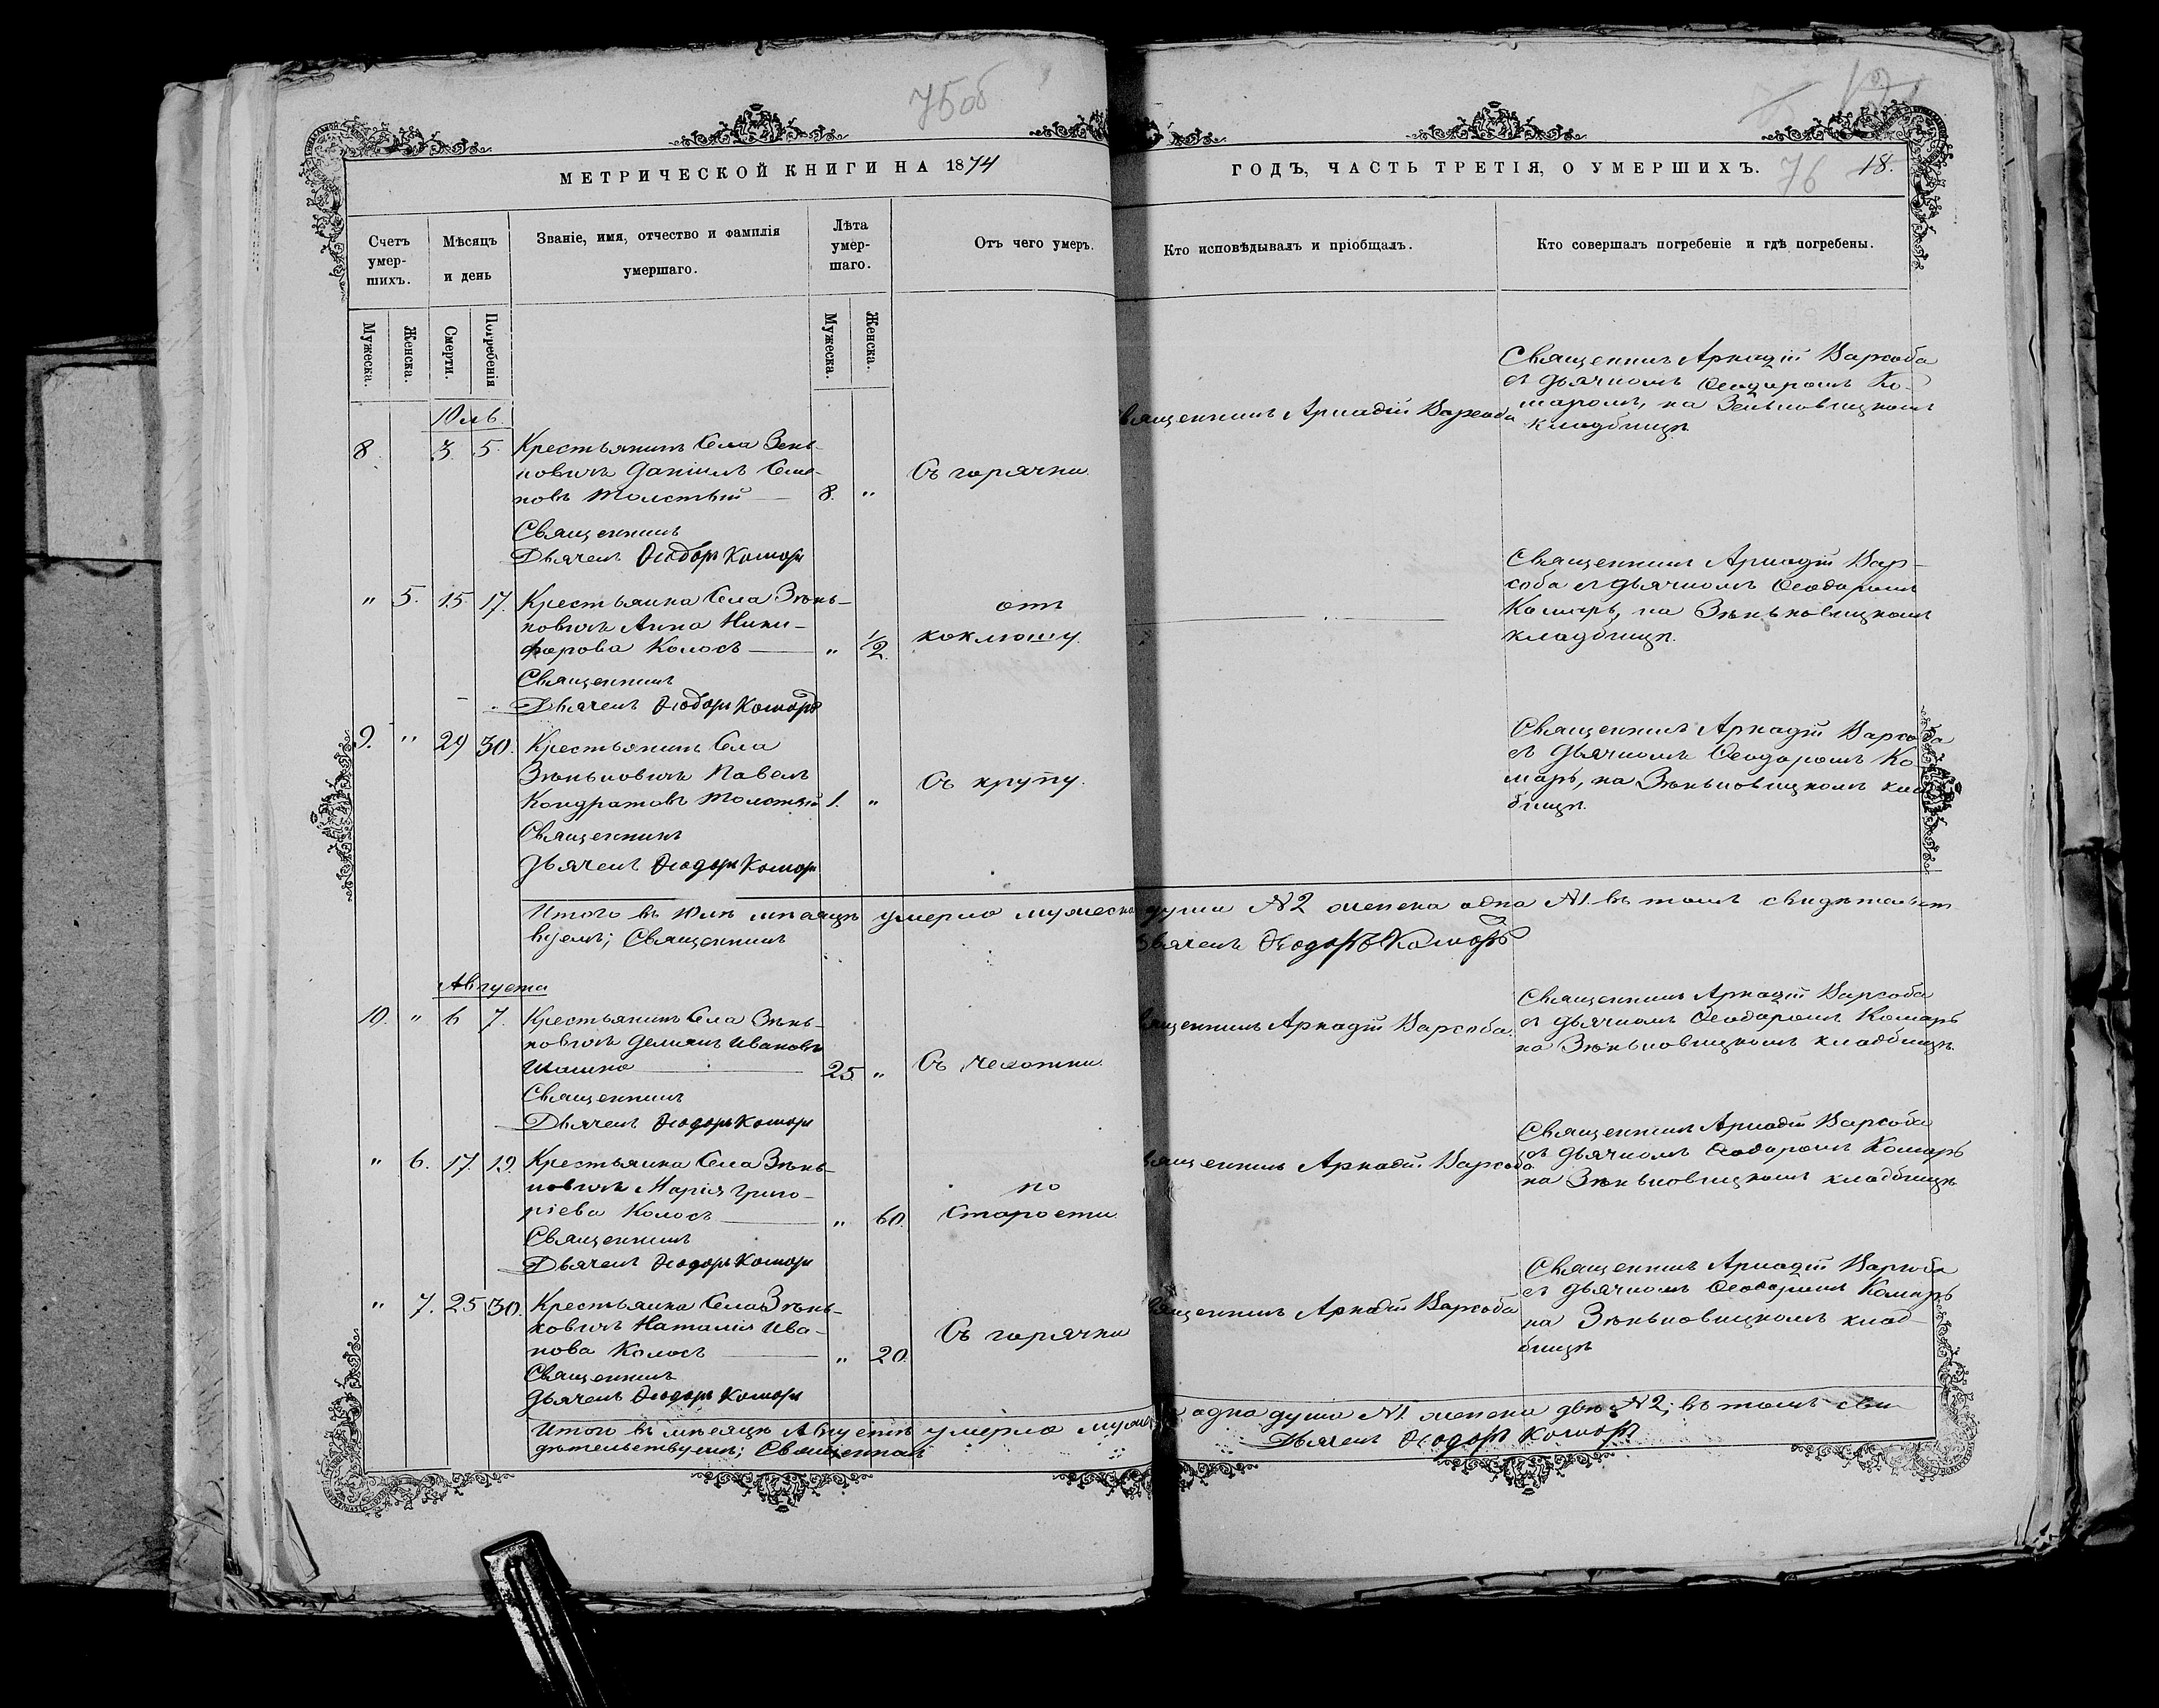 75об
МЕТРИЧЕСКОЙ КНИГИ НА 1874
ГОДЪ, ЧАСТЬ ТРЕТІЯ, О УМЕРШИХЪ.
76
18.
Счетъ умер-шихъ.
Мѣсяцъ и день
Званіе, имя, отчество и фамилія умершаго.
Лѣта умер-шаго.
Отъ чего умеръ.
Кто исповѣдывалъ и пріобщалъ.
Кто совершалъ погребеніе и гдѣ погребены.
Мужеска.
Женска.
Смерти.
Погребенія
Мужеска.
Женска.
Юль
8. 3 5. Крестьянинъ Села Зень-
ковичъ Даніилъ Семе-
новъ Толстый 8. "
Священникъ
Дьячекъ Ѳеодоръ Комаръ
Съ горячки.
Священникъ Аркадій Варсоба
Священникъ Аркадій Варсоба
съ дьячкомъ Ѳеодоромъ Ко-
маромъ, на Зеньковицкомъ
кладбищѣ.
" 5. 15. 17. Крестьянка Села Зѣнь-
ковичъ Анна Ники-
форова Колосъ " 1/2
Священникъ
Дьячекъ Ѳеодоръ Комаръ
отъ
коклюшу.
Священникъ Аркадій Вар-
соба съ дьячкомъ Ѳеодоромъ
Комаръ, на Зѣньковицкомъ
кладбищѣ.
9. " 29 30. Крестьянинъ Села
Зѣньковичъ Павелъ
Кондратовъ Толстый 1. "
Священникъ
Дьячекъ Ѳеодоръ Комаръ
Съ крупу.
Священникъ Аркадій Варсоба
съ дьячкомъ Ѳеодоромъ Ко-
маръ, на Зѣньковицкомъ клад-
бищѣ.
Итого въ Юлѣ мѣсяцѣ умерло мужеска души №2 женска одна №1 въ томъ свидѣтельст-
вуемъ; Священникъ
Дьячекъ Ѳеодоръ Комаръ
Августа
10. " 6 7. Крестьянинъ Села Зѣнь-
ковичъ Демянъ Ивановъ
25 "
Священникъ
Дьячекъ Ѳеодоръ Комаръ
Съ чехотки.
Священникъ Аркадій Варсоба.
Священникъ Аркадій Варсоба
съ дьячкомъ Ѳеодоромъ Комаръ
на Зѣньковицкомъ кладбищѣ.
" 6. 17. 19. Крестьянка Села Зѣнь-
ковичъ Марія Григо-
ріева Колосъ " 60.
Священникъ
Дьячекъ Ѳеодоръ Комаръ
по
Старости.
Священникъ Аркадій Варсоба
Священникъ Аркадій Варсоба
съ дьячкомъ Ѳеодоромъ Комаръ
на Зѣньковицкомъ кладбищѣ
" 7. 25 30. Крестьянка Села Зѣнь-
ковичъ Наталія Ива-
нова Колосъ " 20.
Священникъ
Дьячекъ Ѳеодоръ Комаръ
Съ горячки
Священникъ Аркадій Варсоба
Священникъ Аркадій Варсоба
съ дьячкомъ Ѳеодоромъ Комаръ
на Зѣньковицкомъ клад-
бищѣ
Итого въ мѣсяцѣ Августѣ умерло мужеска одна душа №1 женска двѣ №2; въ томъ сви-
дѣтельствуемъ; Священникъ
Дьячекъ Ѳеодоръ Комаръ